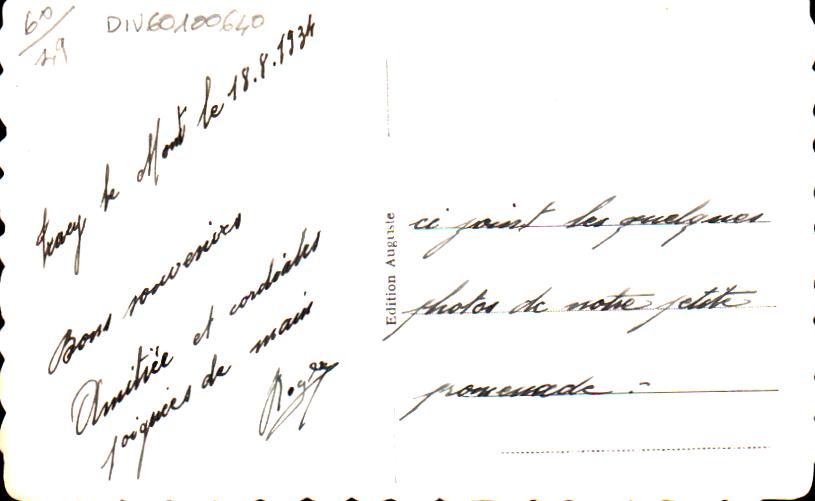 60/
29
DIV60100640
Tracy le Mont le 18.8.1934
Bons souvenirs
Amitiée et cordiales
poignées de main
Roger
Edition Auguste
ci joint les quelques
photos de notre petite
promenade.-